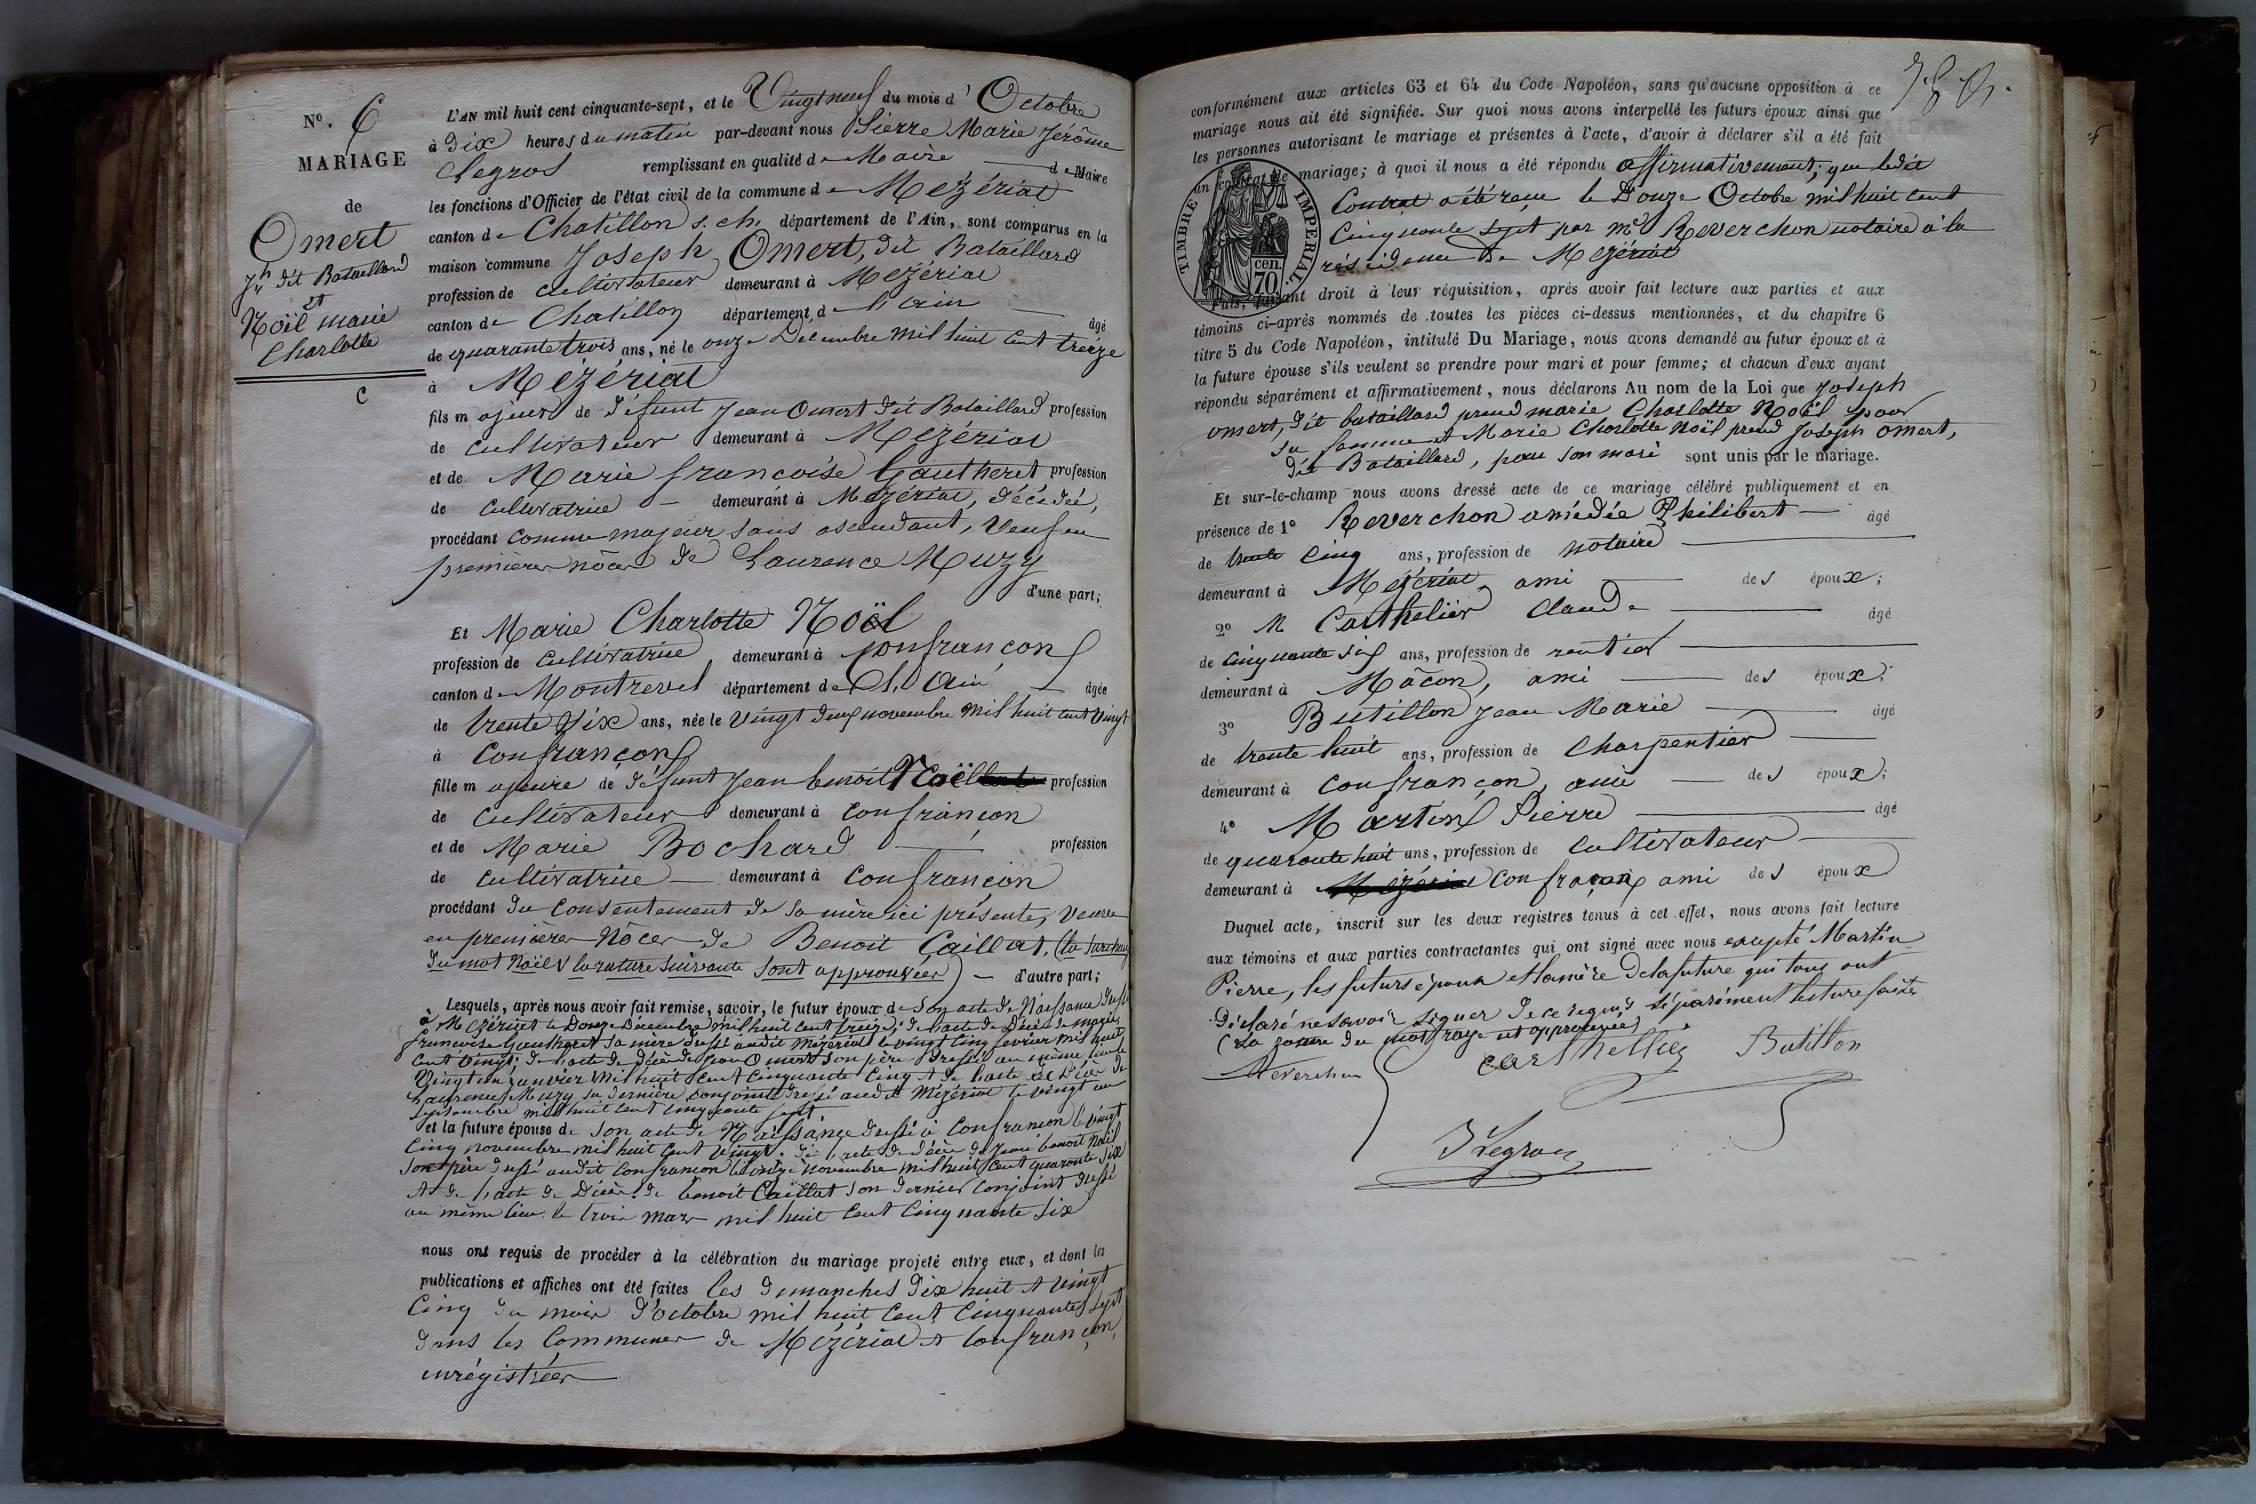 N°. 6
MARIAGE
de
Omert
Jh dit Bataillard
et
Noël marie
Charlotte
C
L'AN mil huit cent cinquante-sept, et le Vingt neuf du mois d' Octobre
à Dix heures du matin par-devant nous Pierre Marie Jerôme
Legros remplissant en qualité de Maire de Maire
les fonctions d'Officier de l'état civil de la commune de Mézériat
canton de Chatillon s. ch. département de l'Ain, sont comparus en la
maison commune Joseph Omert, dit Bataillard
profession de cultivateur demeurant à Mézériat
canton de Chatillon département, de l'ain âgé
de quarante trois ans, né le onze Décembre mil huit cent treize
à Mézériat
fils majeur de défunt Jean Omert dit Bataillard profession
de cultivateur demeurant à Mézériat
et de Marie françoise Gautheret profession
de cultivatrice demeurant à Mézériat, décédée,
procédant comme majeur sans ascendant, Veuf en
premières nôces de Laurence Muzy
d'une part;
Et Marie Charlotte Noël
profession de cultivatrice demeurant à confrançon
canton de Montrevel département de l'Ain âgée
de trente six ans, née le vingt deux novembre mil huit cent vingt
à Confrançon
fille majeure de défunt Jean benoit Noël profession
de cultivateur demeurant à confrançon
et de Marie Bochard profession
de cultivatrice demeurant à confrançon
procédant du consentement de sa mère ici présente, veuve
en premières Nôces de Benoit Caillat, (la surcharge
du mot Noël & la rature suivante sont approuvées) d'autre part;
Lesquels, après nous avoir fait remise, savoir, le futur époux de Son acte de Naissance dressé
à Mézériat le Douze Décembre mil huit cent treize; de l'acte de Décès de marie
françoise Gautheret sa mère dressé audit Mézériat le vingt cinq février mil huit
cent vingt; de l'acte de décès de jean Omert son père dressé au même lieu le
Vingt un janvier mil huit cent cinquante cinq et de l'acte de Décès de
Laurence Muzy sa dernière conjointe dressé audit Mézériat le vingt un
Septembre mil huit cent cinquante sept
et la future épouse de Son acte de Naissance dressé à Confrançon le vingt
cinq novembre mil huit cent vingt. de l'acte de décès de Jean benoit Noël
son père dressé audit Confrançon le onze novembre mil huit cent quarante six
et de l'acte de Décès de benoit Caillat son dernier conjoint dressé
au même lieu le trois mars mil huit cent cinquante six
nous ont requis de procéder à la célébration du mariage projeté entre eux, et dont les
publications et affiches ont été faites les dimanches Dix huit et vingt
cinq du mois d'octobre mil huit cent cinquante sept
dans les communes de Mézériat et Confrançon,
enrégistrées
conformément aux articles 63 et 64 du Code Napoléon, sans qu'aucune opposition à ce
mariage nous ait été signifiée. Sur quoi nous avons interpellé les futurs époux ainsi que
les personnes autorisant le mariage et présentes à l'acte, d'avoir à déclarer s'il a été fait
un contrat de mariage; à quoi il nous a été répondu affirmativement; que ledit
Contrat a été reçu le Douze Octobre mil huit cent
Cinquante sept par me Reverchon notaire à la
résidence de Mézériat
TIMBRE IMPÉRIAL.
cen.
70.
Puis, faisant droit à leur réquisition, après avoir fait lecture aux parties et aux
témoins ci-après nommés de toutes les pièces ci-dessus mentionnées, et du chapitre 6
titre 5 du Code Napoléon, intitulé Du Mariage, nous avons demandé au futur époux et à
la future épouse s'ils veulent se prendre pour mari et pour femme; et chacun d'eux ayant
répondu séparément et affirmativement, nous déclarons Au nom de la Loi que Joseph
omert, dit bataillard prend marie Charlotte Noël pour
sa femme et Marie Charlotte Noël prend Joseph omert,
dit Bataillard, pour son mari sont unis par le mariage.
Et sur-le-champ nous avons dressé acte de ce mariage célébré publiquement et en
présence de 1° Reverchon amédée Philibert âgé
de trente cinq ans, profession de notaire
demeurant à Mézériat, ami des époux;
2° M Carthelier Claude âgé
de cinquante six ans, profession de rentier
demeurant à Mâcon, ami des époux;
3° Butillon Jean Marie âgé
de trente huit ans, profession de Charpentier
demeurant à confrançon, ami des époux;
4° Martin Pierre âgé
de quarante huit ans, profession de cultivateur
demeurant à Mézériat confrançon ami des époux
Duquel acte, inscrit sur les deux registres tenus à cet effet, nous avons fait lecture
aux témoins et aux parties contractantes qui ont signé avec nous excepté Martin
Pierre, les futurs époux et la mère de la future qui tous ont
Déclaré ne savoir signer de ce requis séparément lecture faite
(La rature du mot rayé est approuvée)
Reverchon Carthellier Butillon
JLegros